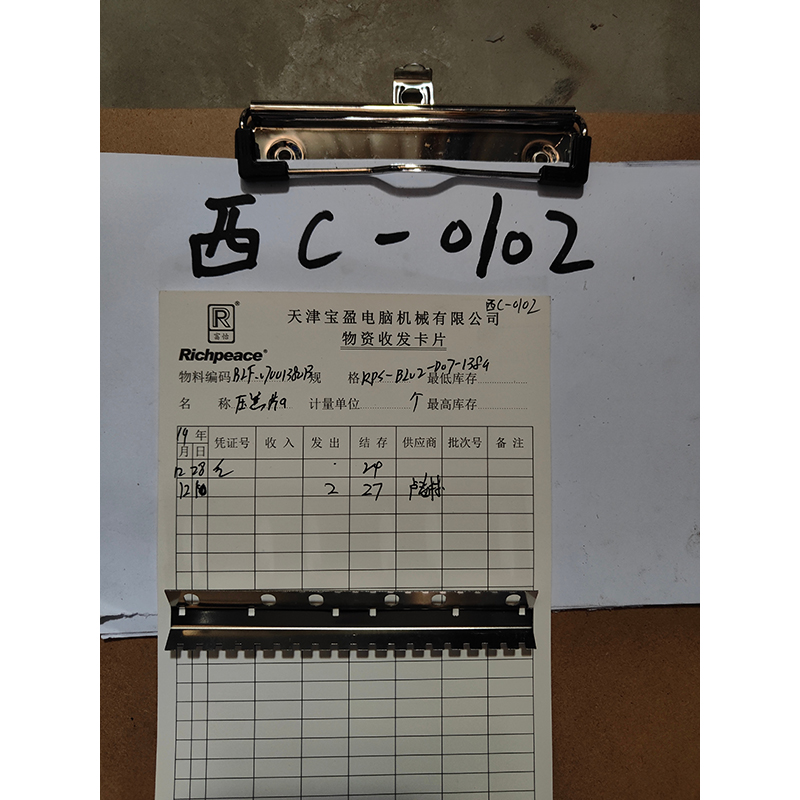 西C-0102
西C-0102
R®
富怡
Richpeace®
天津宝盈电脑机械有限公司
物资收发卡片
物料编码 规 格 RPS-BLU2-D07-138a 最低库存
名 称 计量单位 个 最高库存
19年
月 日 凭证号 收入 发出 结存 供应商 批次号 备注
12 28 29
12 2 27